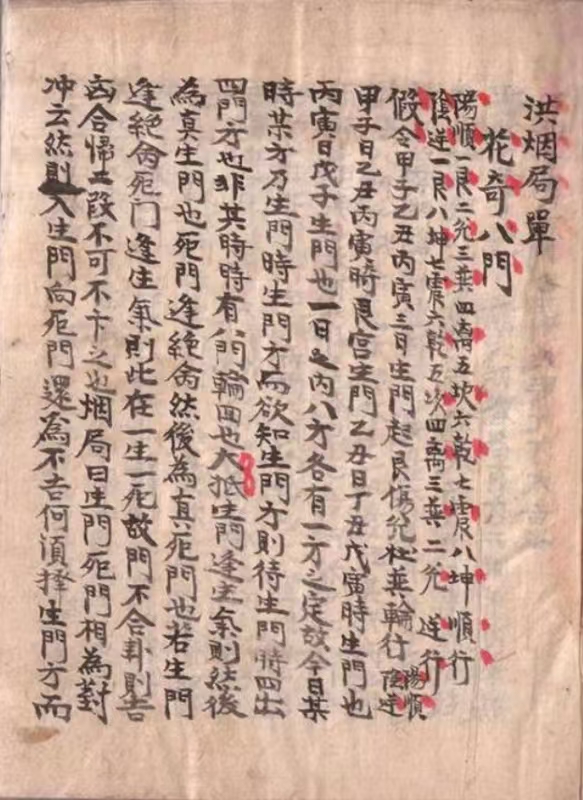 洪烟局單
花奇八門
陽順一艮二兊三巽四离五坎六乾七震八坤順行
陰逆一艮八坤七震六乾五坎四离三巽二兊逆行
假令甲子乙丑丙寅三日生門起艮傷兊杜巽輪行陽順陰逆
甲子日乙丑丙寅時艮宮生門乙丑日丁丑戊寅時生門也
丙寅日戊子生門也一日之内八方各有一方之定故今日某
時某方乃生門時生門方而欲知生門方則待生門時四出
四門方也非其時時有八門輪回也大抵生門逢生氣則然後
為真生門也死門逢絶命然後為真死門也若生門
逢絶命死门逢生氣則此在一生一死故門不合卦則吉
凶合帰二段不可不卞之也烟局曰生門死門相為對
冲云然則入生門向死門還為不吉何須擇生門方而